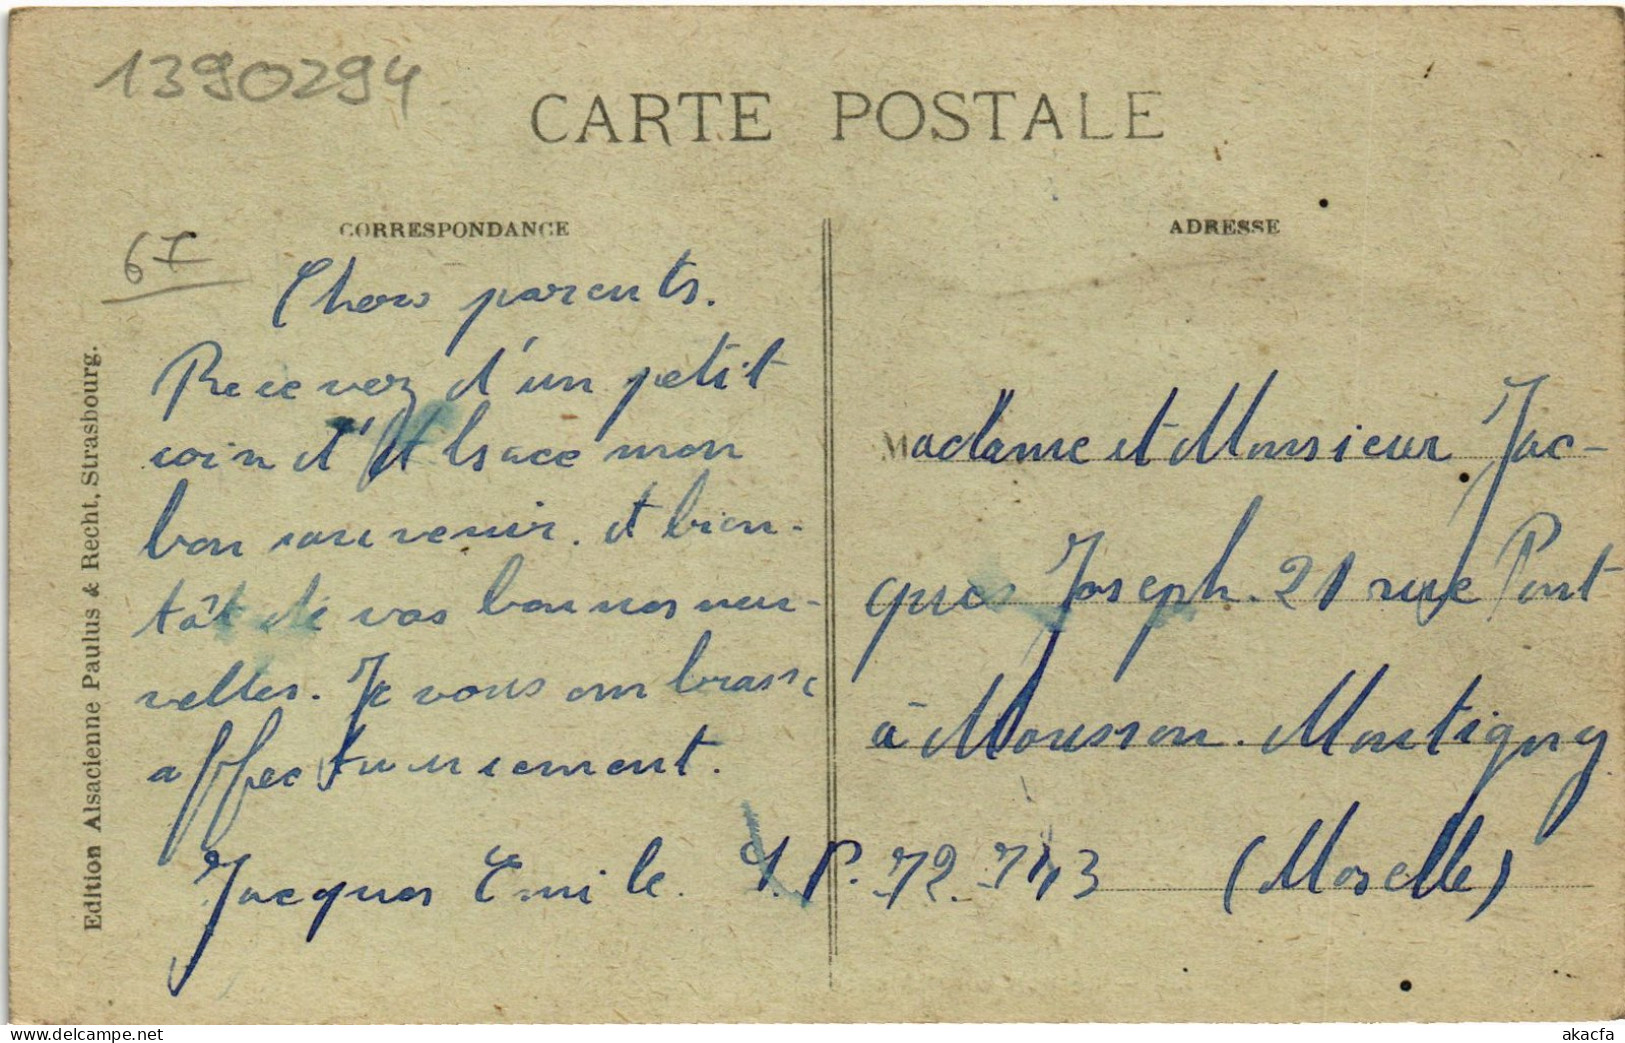 1390294
CARTE POSTALE
CORRESPONDANCE
ADRESSE
67
Chers parents.
Recevez d'un petit
coin d'Alsace mon
bon souvenir. et bien-
tôt de vos bonnes nou-
velles. Je vous embrasse
affectueusement.
Jacques Emile. S.P. 72.743
Madame et Monsieur Jac-
ques Joseph. 21 rue Pont
à Mousson. Montigny
(Moselle)
Edition Alsacienne Paulus & Recht, Strasbourg.
www.delcampe.net
akacfa